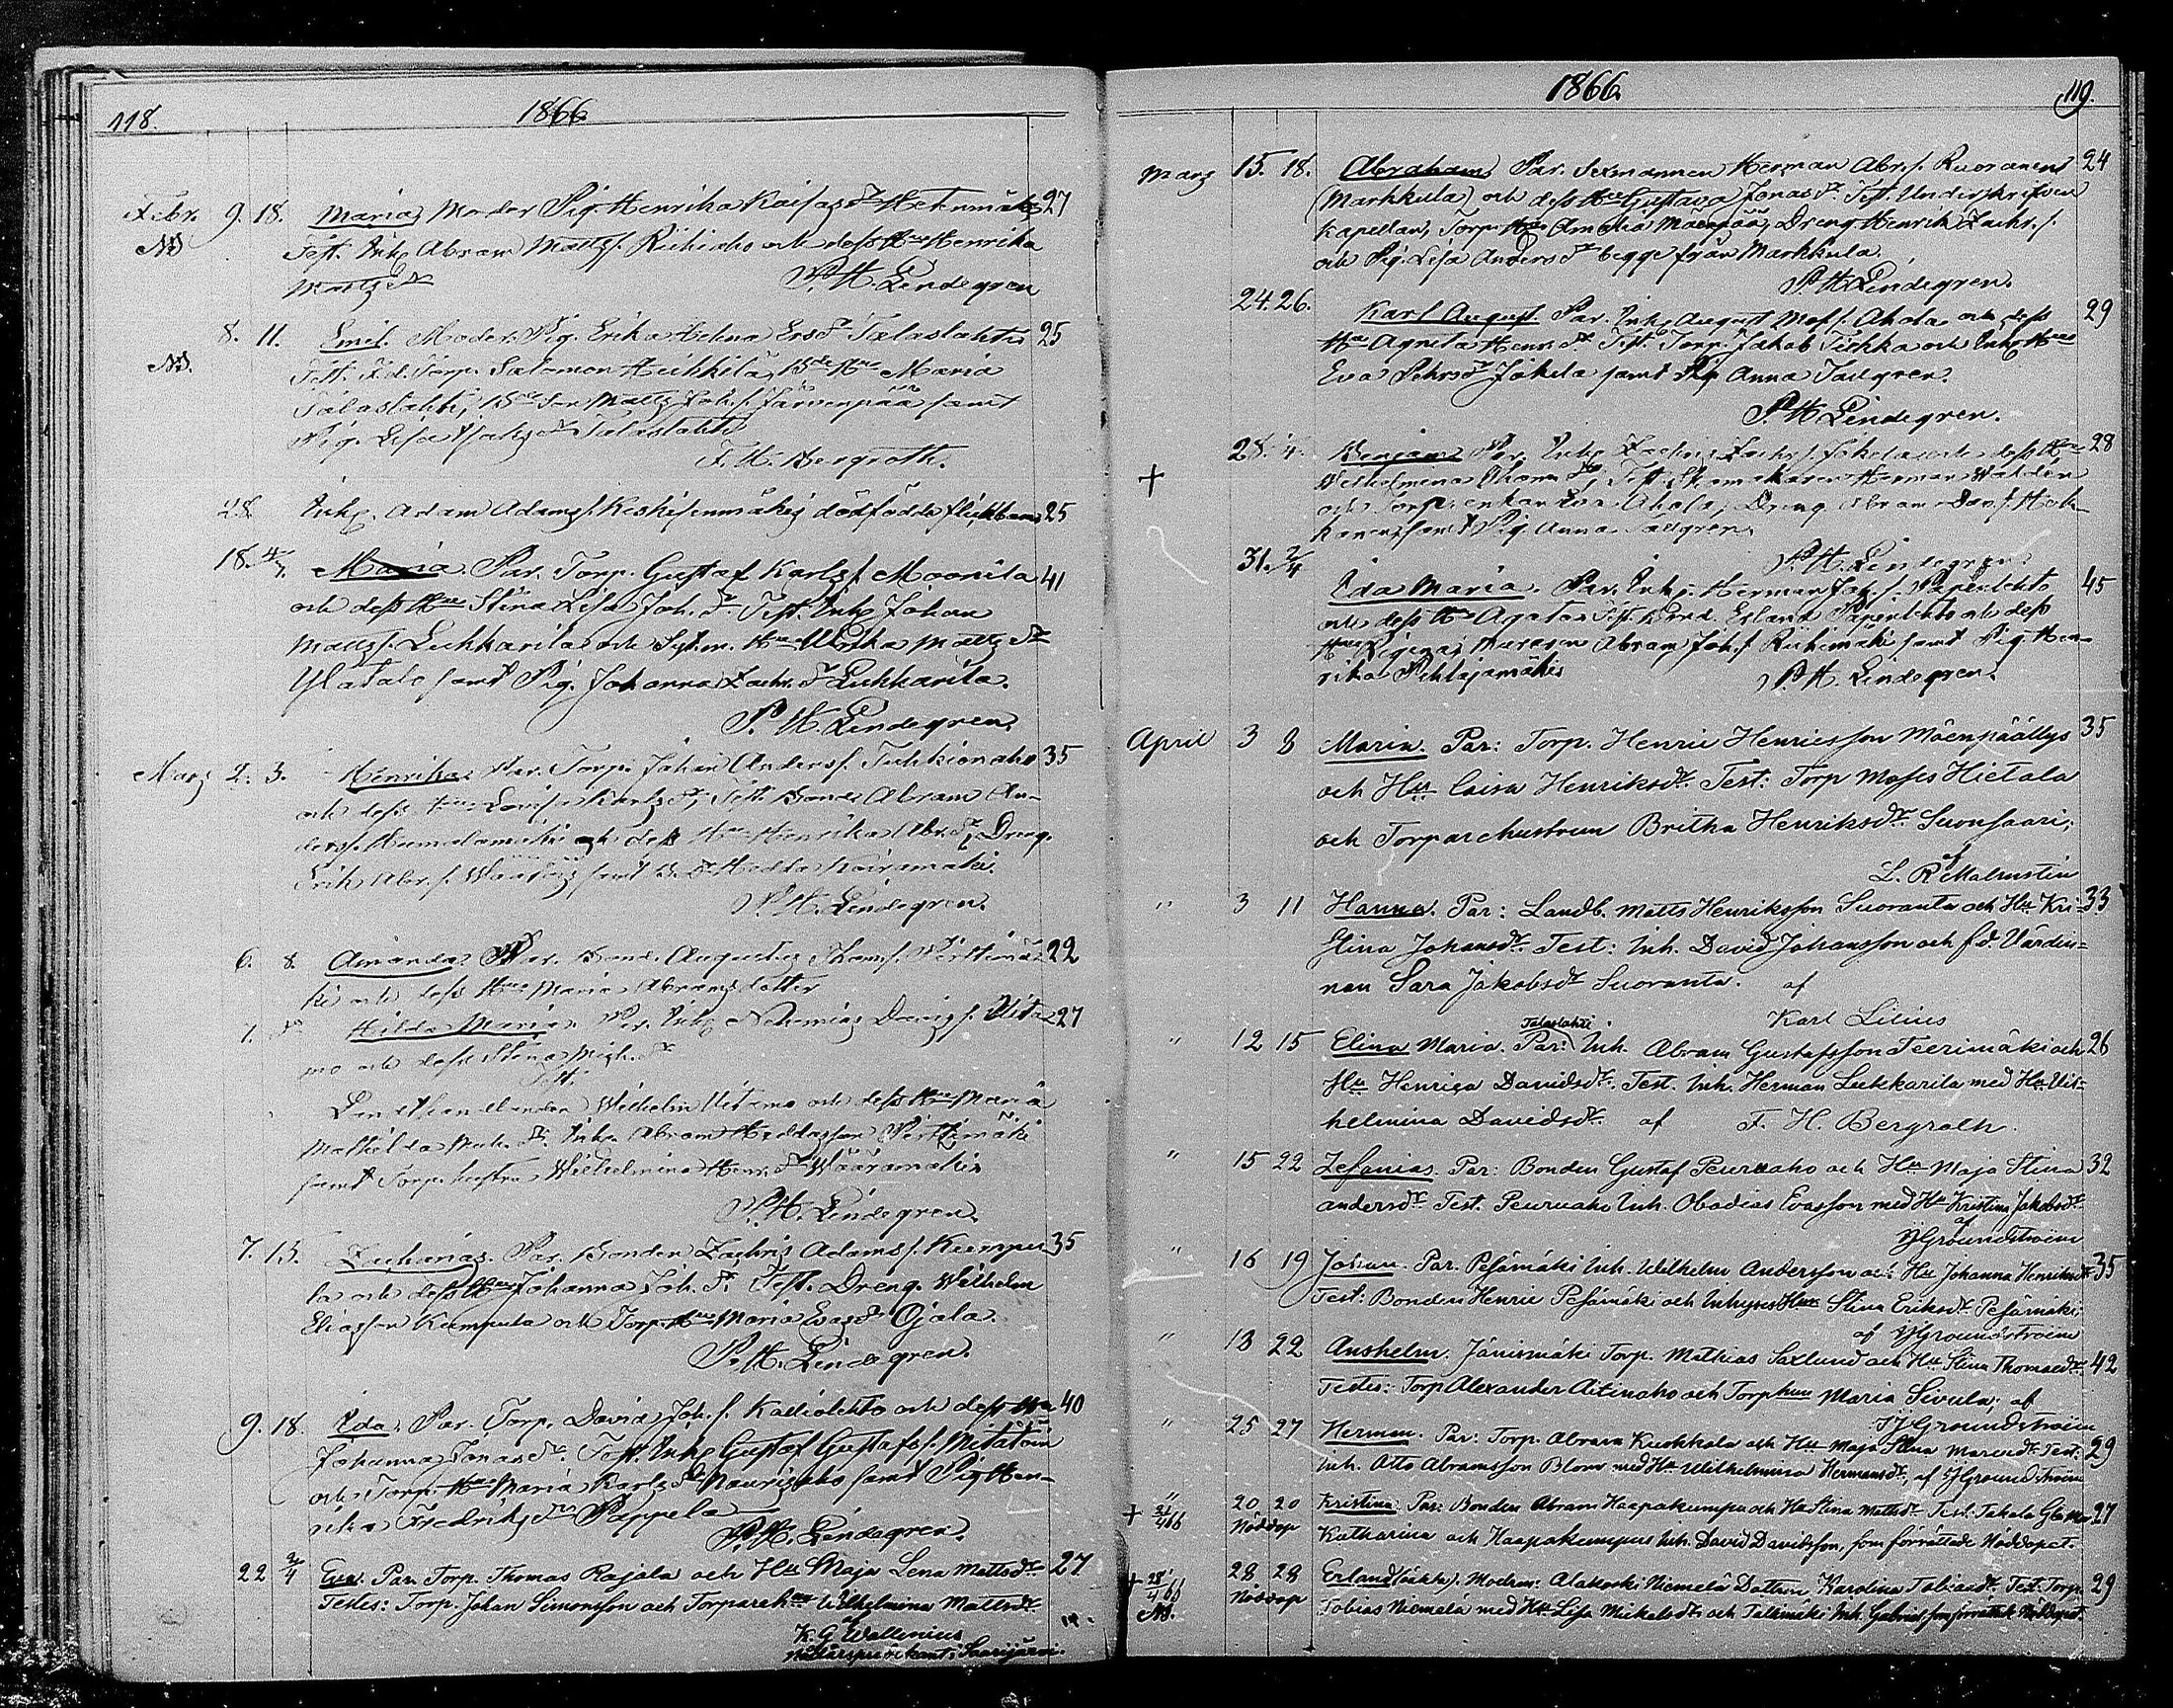 118.
1866
Febr. 9. 18. Maria, Moder Pig. Henrika Kaisas dr Hetemäki 27
Test. Inh. Abram Mattss. Riihiaho och dess Hu Henrika
Matts dr
P. H. Lindegren
8. 11. Emil. Moder Pig. Erika Helena Ers dr Talaslahti 25
Test. F.d. Torp. Salomon Heikkilä, Bde Hu Maria
Talaslahti, Bde Son Matts Joh. s. Järvenpää samt
Pig. Lisa Isaks dr Talaslahti
F. H. Bergroth.
28 Inh. Adam Adams s. Keskisenmäkis dödfödde flickbarn 25
18. 4/7. Maria. Par. Torp. Gustaf Karls s. Moonila 41
och dess Hu Stina Lisa Joh. dr Test. Inh. Johan
Matts s. Lukkarila och Sytn. Hu Ulrika Matts dr
Ylätalo samt Pig. Johanna Zachr. dr Lukkarila.
P. H. Lindegren.
Mars 2. 3. Henrika. Par. Torp. Johan Anders s. Tuhkionaho 35
och dess Hu Lovisa Karls dr, Test. Bonde Abram An-
ders s. Humalamäki och dess Hu Henrika Abr. dr, Dreng.
Erik Abr. s. samt Hedda
P. H. Lindegren.
6. 8. Amanda. Par. Bond. Augustus Thoms s. Pirttimä- 22
ki och dess Hu Maria Abrams dotter
1. Hilda Maria. Par. Inh. Nehemias Davids s. Uita- 27
mo och dess Stina Mich. dr
Test.
Lanthandlanden Wilhelm Uitamo och dess Hu Maria
Mathilda Mich. dr. Inh. Abram Heddasson Pirttimäki
samt Torp. hustru Wilhelmina Henr. dr Wääramäki
P. H. Lindegren.
7. 13. Zacharias. Par. Bonden Zachris Adams s. Kumpu- 35
la och dess Hu Johanna Joh. dr, Test. Dreng. Wilhelm
Eliasson Kumpula och Torp. Hu Maria Evas dr Ojala.
P. H. Lindegren.
9. 18. Ida. Par. Torp. David Joh. s. Kalliolehto och dess Hu 40
Johanna Jonas dr. Test. Inh. Gustaf Gustafs s. Mitätön
och Torp. Hu Maria Karls dr Naurisaho samt Pig Hen-
rika Fredriks dr Pappela
P. H. Lindegren.
22 2/4 Eva. Par. Torp. Thomas Rajala och Hu Maja Lena Mattsdr 27
Testes: Torp. Johan Simonsson och Torpareh. Wilhelmina Mattsdr
af
K. G. Wallenius
Nådårspredikant i Saarijärvi.
1866.
119.
Mars 15. 18. Abraham, Par. Sexmannen Herman Abr. s. Ruoranen 24
(Markkula) och dess Hu Gustava Jonas dr. Test. Underskrifven
Kapellan, Torp. Hu Amalia Mäenpää, Dreng Henrik Zachr. s.
och Pig. Lisa Anders dr begge från Markkula.
P. H. Lindegren.
24. 26. Karl August. Par. Inh. August Mos s. Ahola och dess 29
Hu Agneta Henr. dr Test. Torp. Jakob Tuhka och Inh. Hu
Eva Pehrs dr Jokela samt Pig Anna Tallgren.
P. H. Lindegren.
28. 4. Benjam. Par. Inh. Zachris Zachr. s. Jokela och dess Hu 28
+ Wilhelmina Thom. dr, Test. Skomakaren Herman Walden
och Torp. enkan Ahola, Dreng. Abram Dav. s. Hok-
kanen samt Pig. Anna Tallgren.
P. H. Lindegren.
31. 2/4 Ida Maria. Par. Inh. Herman Jak. s. Pajulehto 45
och dess Hu Agata Test. Bond. Erland Pajulehto och dess
Hu Regina, Muraren Abram Joh. s. Riihimäki samt Pig. Hen-
rika Pihlajamäki
P. H. Lindegren.
April 3 8 Maria. Par: Torp. Henric Henricsson Mäenpäällys 35
och Hu Caisa Henriksdr. Test: Torp Moses Hietala
och Torparehustrun Britha Henriksdr Suonsaari;
af
L. R. Malmstén
" 3 11 Hanna. Par: Landb. Matts Henriksson Suoranta och Hu Kri- 33
stina Johansdr. Test: Inh. David Johansson och f.d. Värdin-
nan Sara Jakobsdr Suoranta. af
Karl Lilius
" 12 15 Elina Maria. Par: Talaslahti Inh. Abram Gustafsson Teerimäki och 26
Hu Henrica Davidsdr. Test. Inh. Herman Lukkarila med Hu Vil-
helmina Davidsdr. af F. H. Bergroth.
" 15 22 Zefanias. Par: Bonden Gustaf Peuruaho och Hu Maja Stina 32
Andersdr. Test. Peuruaho Inh. Obadias Evasson med Hu Kristina Jakobsdr.
af
IJGroundstroem
" 16 19 Johan. Par. Pesämäki Inh. Wilhelm Andersson och Hu Johanna Henriksdr 35
Test: Bonden Henric Pesämäki och Inhyses Hu Stina Eriksdr Pesämäki;
af IJGroundstroem
" 13 22 Anshelm. Jänismäki Torp. Mathias Saxlund och Hu Stina Thomasdr 42
Testes: Torp Alexander Aitinaho och Torphun Maria Sivula; af
IJGroundstroem
" 25 27 Herman. Par: Torp. Abram Kuokkala och Hu Maja Stina Marcusdr. Test: 29
Inh. Otto Abramsson Blom med Hu Wilhelmina Hermansdr, af IJGroundstroem
" + 21/4 66 20 20 Nöddop Kristina. Par: Bonden Abram Haapakumpu och Hu Stina Mattsdr Test: Takala Gla
Katharina och Haapakumpus Inh. David Davidsson, som förrättade Nöddopet. 27
+ 28/4 66 28 28 Nöddop Erland (oäkta). Modren: Alakoski Niemelä Dottren Karolina Tobiasdr. Test: Torp. 29
Tobias Niemelä med Hu Lisa Mickelsdr och Tallimäki Inh. Gabriel, som förrättade Nöddopet.